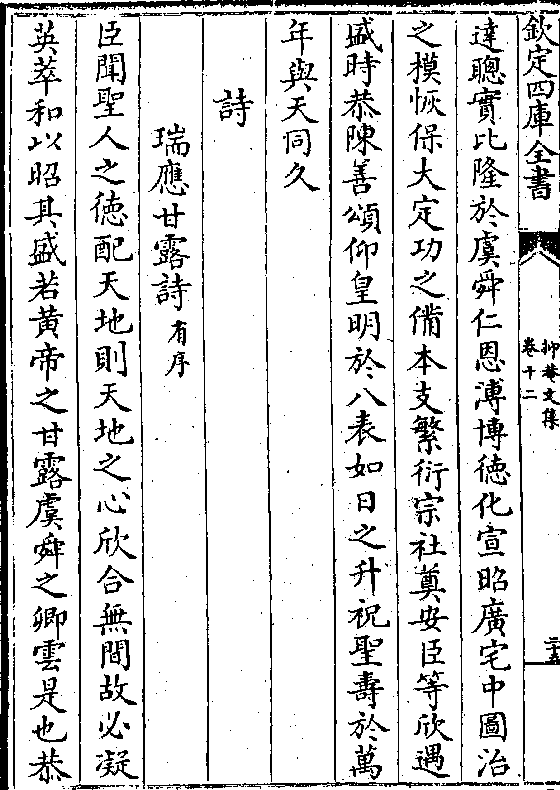 欽定四庫全書
抑菴文集
卷十二
二十五
達聰實比隆於虞舜仁恩溥博徳化宣昭廣宅中圖治
之模恢保大定功之備本支繁衍宗社奠安臣等欣遇
盛時恭陳善頌仰皇明於八表如日之升祝聖壽於萬
年與天同久
詩
瑞應甘露詩有序
臣聞聖人之徳配天地則天地之心欣合無間故必凝
英萃和以昭其盛若黄帝之甘露虞舜之卿雲是也恭